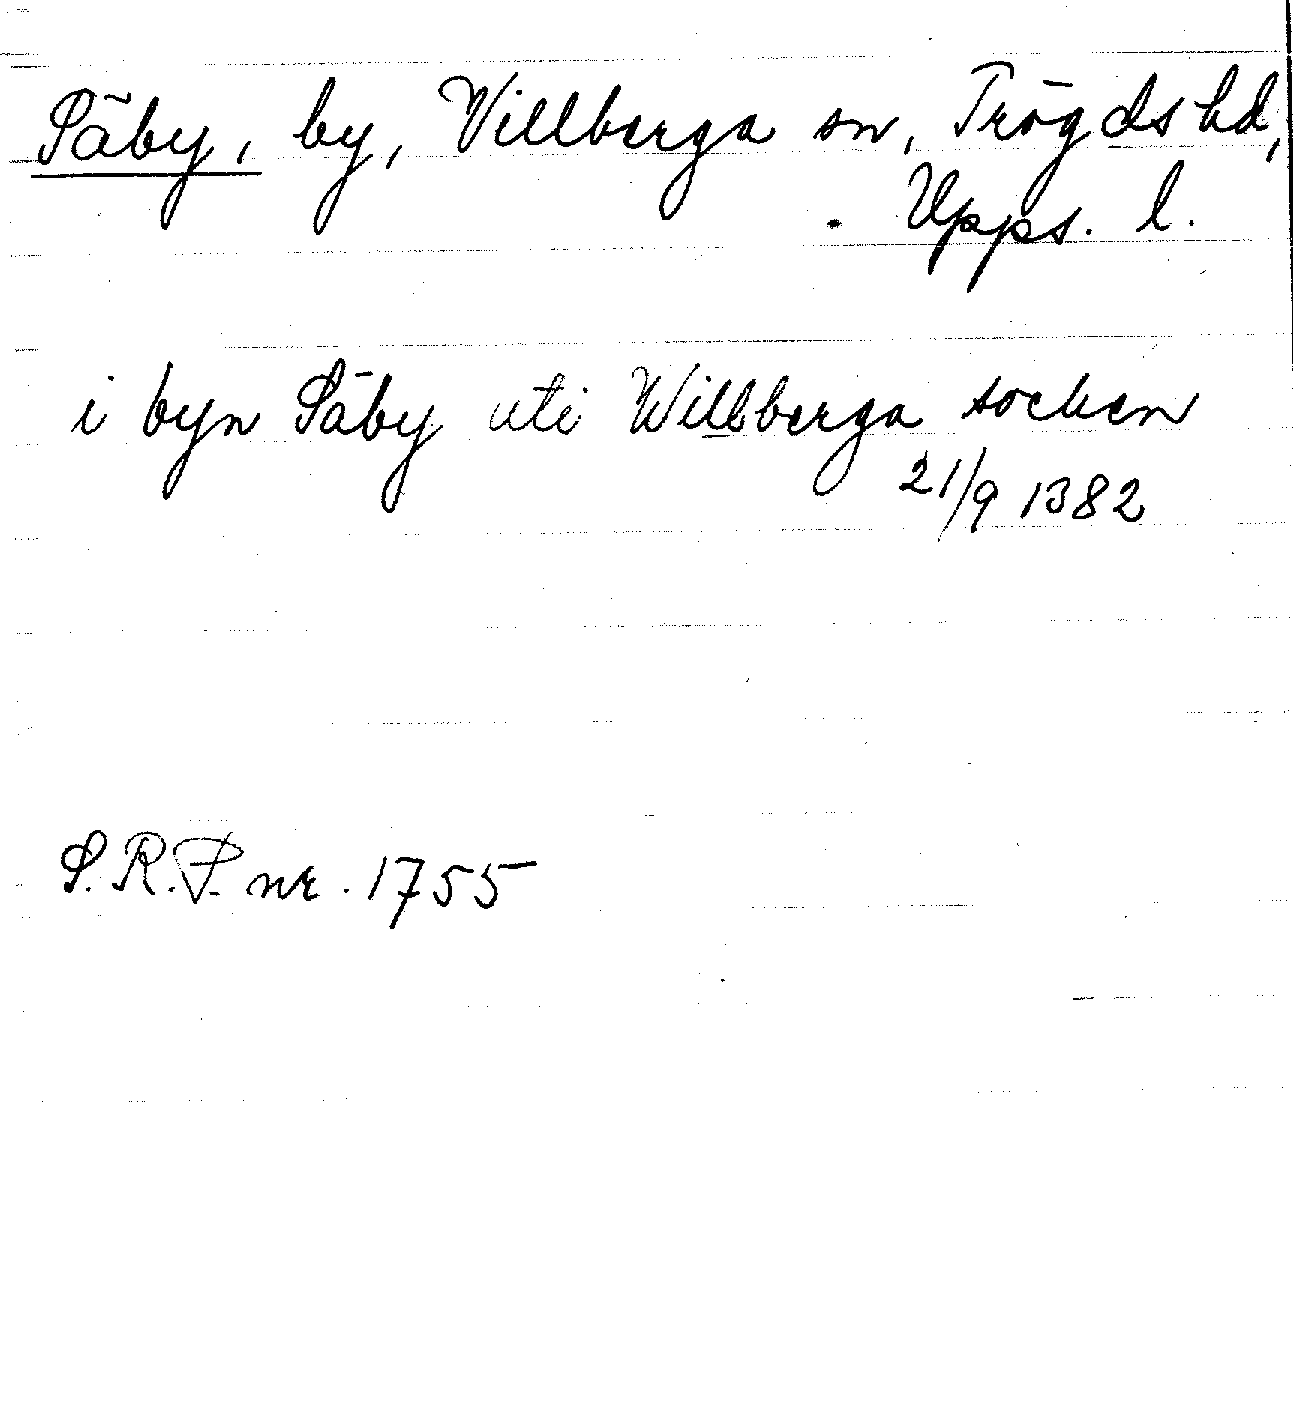 Säby, by, Villberga sn, Trögds hd,
Upps. l.
i byn Säby uti Willberga socken
21/9 1382
S.R.P. nr. 1755